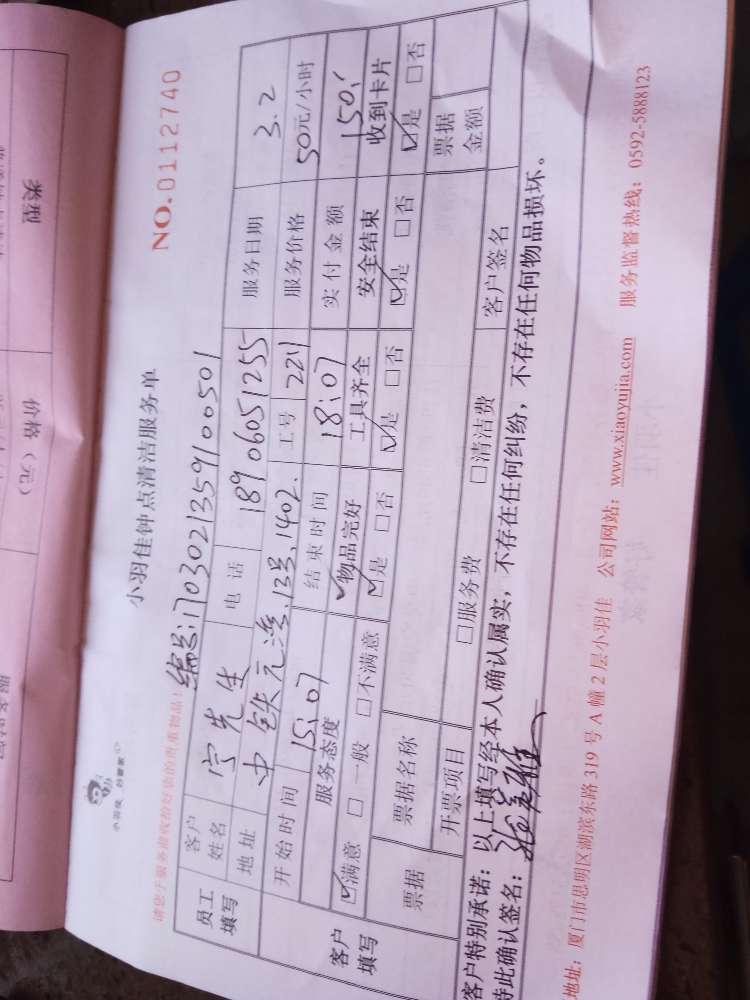 类型
价格（元）
小羽佳钟点清洁服务单
NO.0112740
小羽佳 好管家
请您于服务前收拾好您的贵重物品！
编号:170302135910050​1
员工填写
客户姓名 宁先生 电话 18906051255 服务日期 3.2
地址 中铁元湾.13号.1402. 工号 2211 服务价格 50元/小时
客户填写
开始时间 15:07 结束时间 18:07 实付金额 150.
服务态度 物品完好 工具齐全 安全结束 收到卡片
☑满意 □一般 □不满意 ☑是 □否 ☑是 □否 ☑是 □否 ☑是 □否
票据 票据名称 票据金额
开票项目 □服务费 □清洁费 客户签名
客户特别承诺：以上填写经本人确认属实，不存在任何纠纷，不存在任何物品损坏。
特此确认签名：
地址：厦门市思明区湖滨东路 319 号 A 幢 2 层小羽佳 公司网站：www.xiaoyujia.com 服务监督热线：0592-5888123